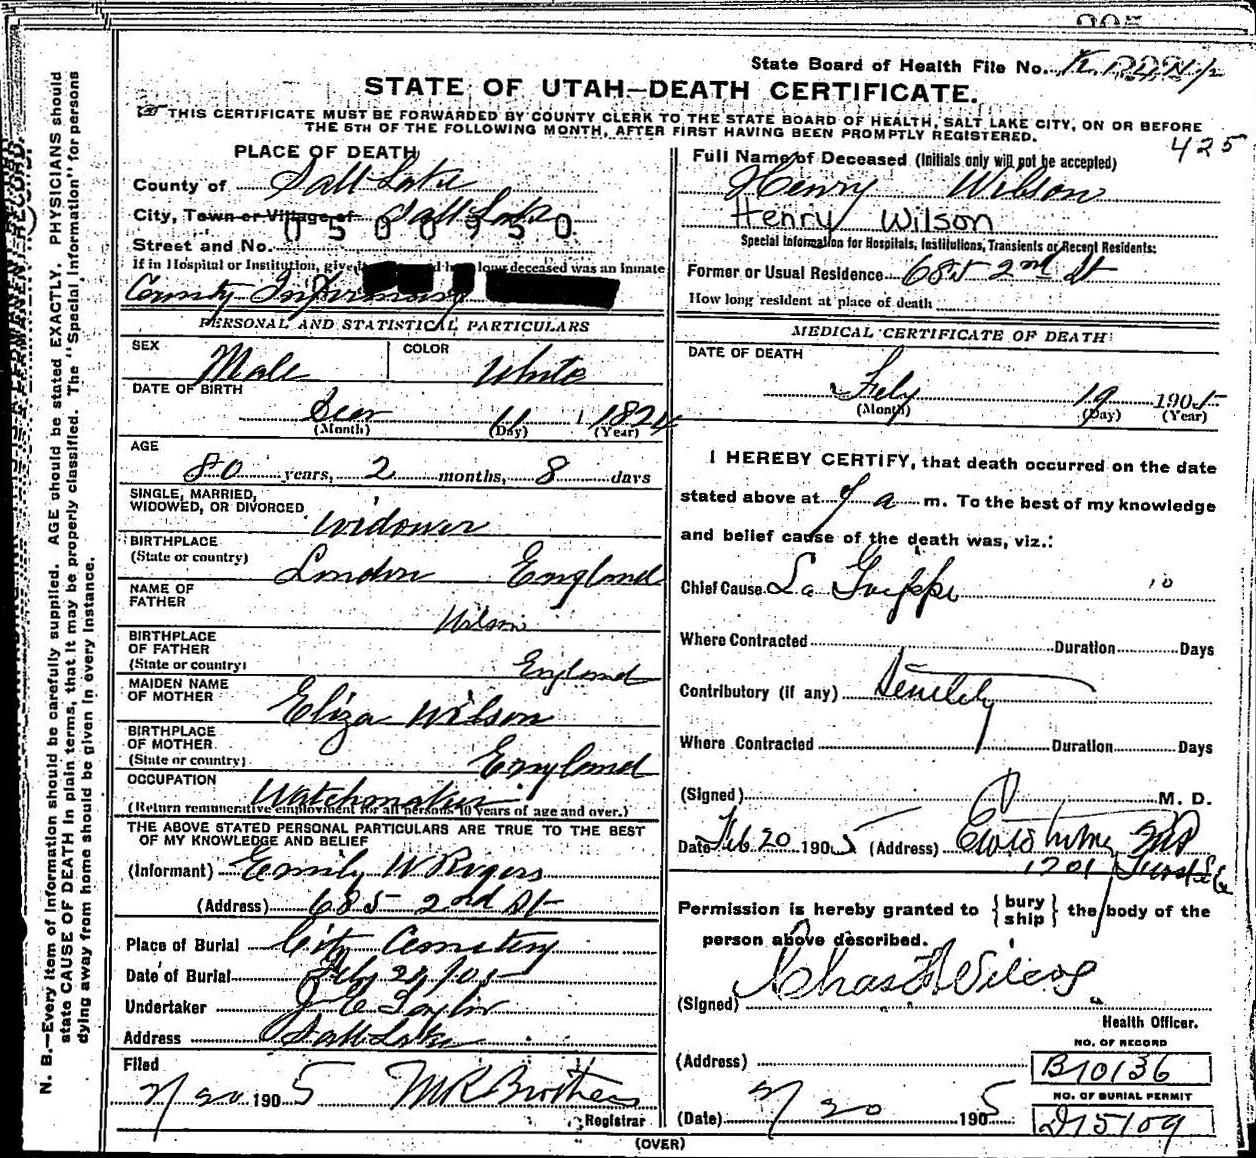 State Board of Health File No.
STATE OF UTAH—DEATH CERTIFICATE.
THIS CERTIFICATE MUST BE FORWARDED BY COUNTY CLERK TO THE STATE BOARD OF HEALTH, SALT LAKE CITY, ON OR BEFORE
THE 5TH OF THE FOLLOWING MONTH, AFTER FIRST HAVING BEEN PROMPTLY REGISTERED.
425
PLACE OF DEATH
County of Salt Lake
City, Town or Village of Salt Lake
0500950
Street and No.
If in Hospital or Institution, give long deceased was an inmate
County Infirmary
PERSONAL AND STATISTICAL PARTICULARS
SEX Male COLOR White
DATE OF BIRTH
Dec 11 1824
(Month) (Day) (Year)
AGE
80 years, 2 months, 8 days
SINGLE, MARRIED,
WIDOWED, OR DIVORCED Widower
BIRTHPLACE
(State or country) London England
NAME OF
FATHER Wilson
BIRTHPLACE
OF FATHER
(State or country) England
MAIDEN NAME
OF MOTHER Eliza Wilson
BIRTHPLACE
OF MOTHER
(State or country) England
OCCUPATION Watchmaker
(Return remunerative employment for all persons 10 years of age and over.)
THE ABOVE STATED PERSONAL PARTICULARS ARE TRUE TO THE BEST
OF MY KNOWLEDGE AND BELIEF
(Informant) Emily W Rogers
(Address) 685 2nd St
Place of Burial City Cemetery
Date of Burial Feby 20/05
Undertaker
Address Salt Lake
Filed
2/20 1905 M K Brothers
Registrar
Full Name of Deceased (Initials only will not be accepted)
Henry Wilson
Henry Wilson
Special Information for Hospitals, Institutions, Transients or Recent Residents:
Former or Usual Residence 685 2nd St
How long resident at place of death
MEDICAL CERTIFICATE OF DEATH
DATE OF DEATH
Feby 19 1905
(Month) (Day) (Year)
I HEREBY CERTIFY, that death occurred on the date
stated above at 9 a m. To the best of my knowledge
and belief cause of the death was, viz.:
Chief Cause La Grippe 10
Where Contracted Duration Days
Contributory (if any) Senility
Where Contracted Duration Days
(Signed) M. D.
Date Feb 20 1905 (Address)
1201
Permission is hereby granted to { bury ship } the body of the
person above described.
(Signed) Chas Wilcox
Health Officer.
(Address)
NO. OF RECORD
B10136
(Date) 2/20 1905
NO. OF BURIAL PERMIT
D15109
(OVER)
N. B.—Every item of information should be carefully supplied. AGE should be stated EXACTLY. PHYSICIANS should
state CAUSE OF DEATH in plain terms, that it may be properly classified. The "Special Information" for persons
dying away from home should be given in every instance.